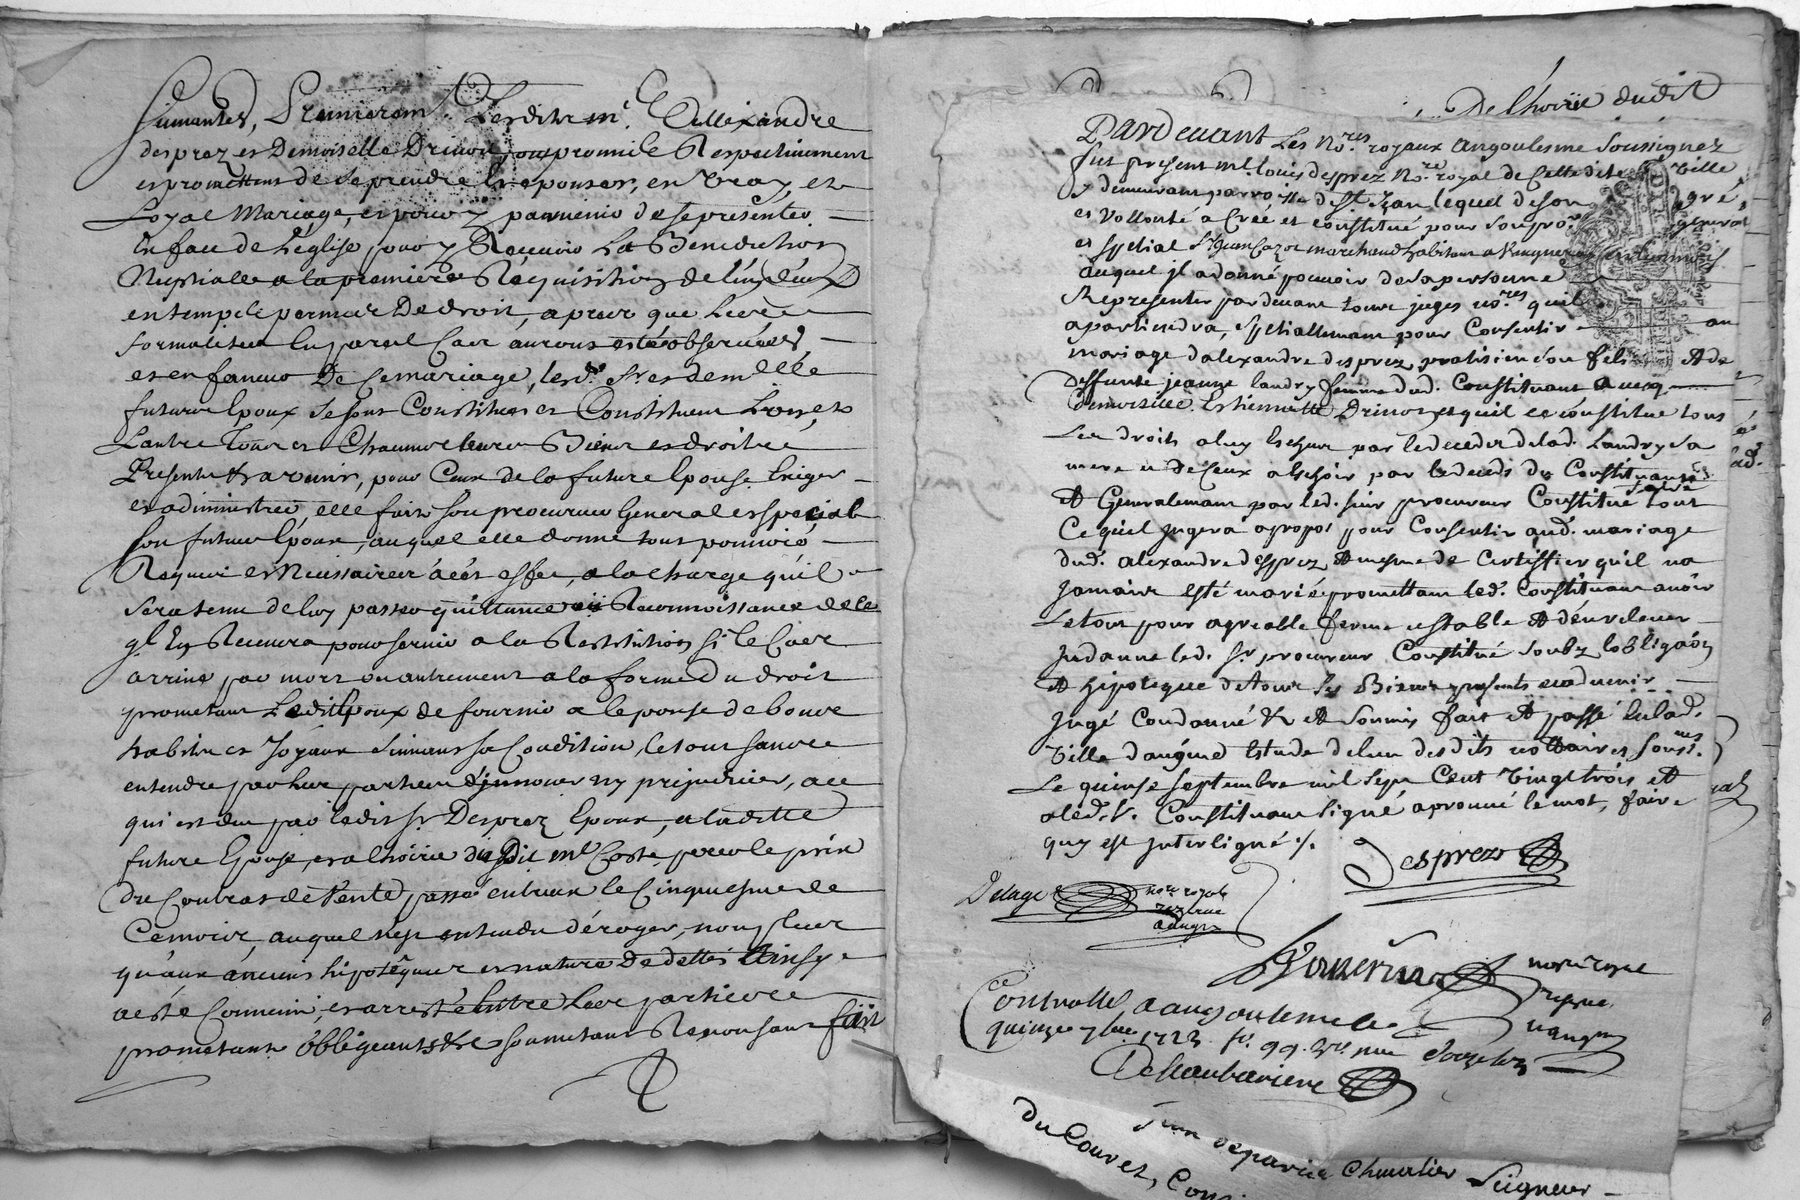 suivantes, Premierem.t Lesdits m.e Allexandre
desprez et Demoiselle Drinon sont promis Respectivement
et promettent de se prendre et epouser, en vray et
Loyal Mariage, et pour y parvenir de se presenter
En face de L'eglise pour y Recevoir La Benediction
Nuptialle a la premiere Requisition de l'un d'eux
en temps de permis De droit, apres que les
formalitees En pareil Cas auront esté observées
et en faveur De Ce mariage, lesd. Srs et demelle
futurs Epoux se sont Constitués et Constituent L'un et
Lautre Tous et Chacuns leurs Biens et droits
Presents et a venir, pour Ceux de la future Epouse Exiger
et administrer, elle fait son procureur General et special
son futeur Epoux, auquel elle donne tout pouvoir
Requis et Necessaires a cet effet, a la charge qu'il
sera tenu de luy passer quittance ou Reconnoissance de ce
ql En Recevra pour servir a la Restitution si le Cas
arrive par mort ou autrement a la forme du droit
prometant Ledit Epoux de fournir a l'epouse de bons
habits et Joyaux suivant sa Condition, le tout sans
entendre par les parties d'innover ny prejudicier, a ce
qui est deu par ledit Sr Desprez Epoux, a ladite
future Epouse, et a l'hoirie dudit me Coste pour le prix
du Contrat de Vente passé entreux le Cinquiesme de
Ce mois, auquel n'est entendu déroger, non plus
qu'aux anciens hipotêques et nature De dettes Ainsy
a esté Convenu, et arresté Entre Les parties
prometant obligeants &c soumetant Renonsant fait
De l'hoirie dudit
Pardevant Les No.res royaux angoulesme soussignez
fut present me louis desprez No.re royal de Cette dite Ville
y demeurant parroisse de St Jean lequel de son gré
et Vollonté a Creé et constitué pour son pro.r general
et spetial Sr Jean Cazot marchand habitant a
auquel il a donné pouvoir de sa personne
Representer pardevant tous juges no.res quil
apartiendra, spetiallement pour Consentir au
mariage dalexandre desprez pratisien son fils Et de
deffunte jeanne landry femme dud. Constituant avecq
Demoiselle Estiennette Drinon et quil se constitue tous
Les droits a luy Eschus par le deceder de lad. Landry sa
mere et de Ceux a Eschoir par le deceds du Constituant
Et Generalement par led. sieur procureur Constitué faire tout
Ce quil Jugera apropos pour Consentir aud. mariage
dud. alexandre desprez Et mesme de Certiffier quil na
Jamais esté marié promettant led. Constituant avoir
Le tout pour agreable ferme et stable Et d'en relever
Indamne led. Sr procureur Constitué soubz lobligaon
Et hipoteque de tous ses Biens presents et advenir
Jugé Condamné &c Et soumis fait Et passé En lad.
Ville dangme Estude de lun des dits nottaires souss.nes
Le quinse septembre mil sept Cent Vingt trois Et
a led. Sr. Constituant signé aprouvé le mot, faire
quy est Interligné ./.
Desprez
Delage nore royal
rezerve
Nore royal
reserve
Controllé a angoulesme le
quinze 7bre 1723 fo. 99.
Jean de paris Chevalier Seigneur
du Couret, Con